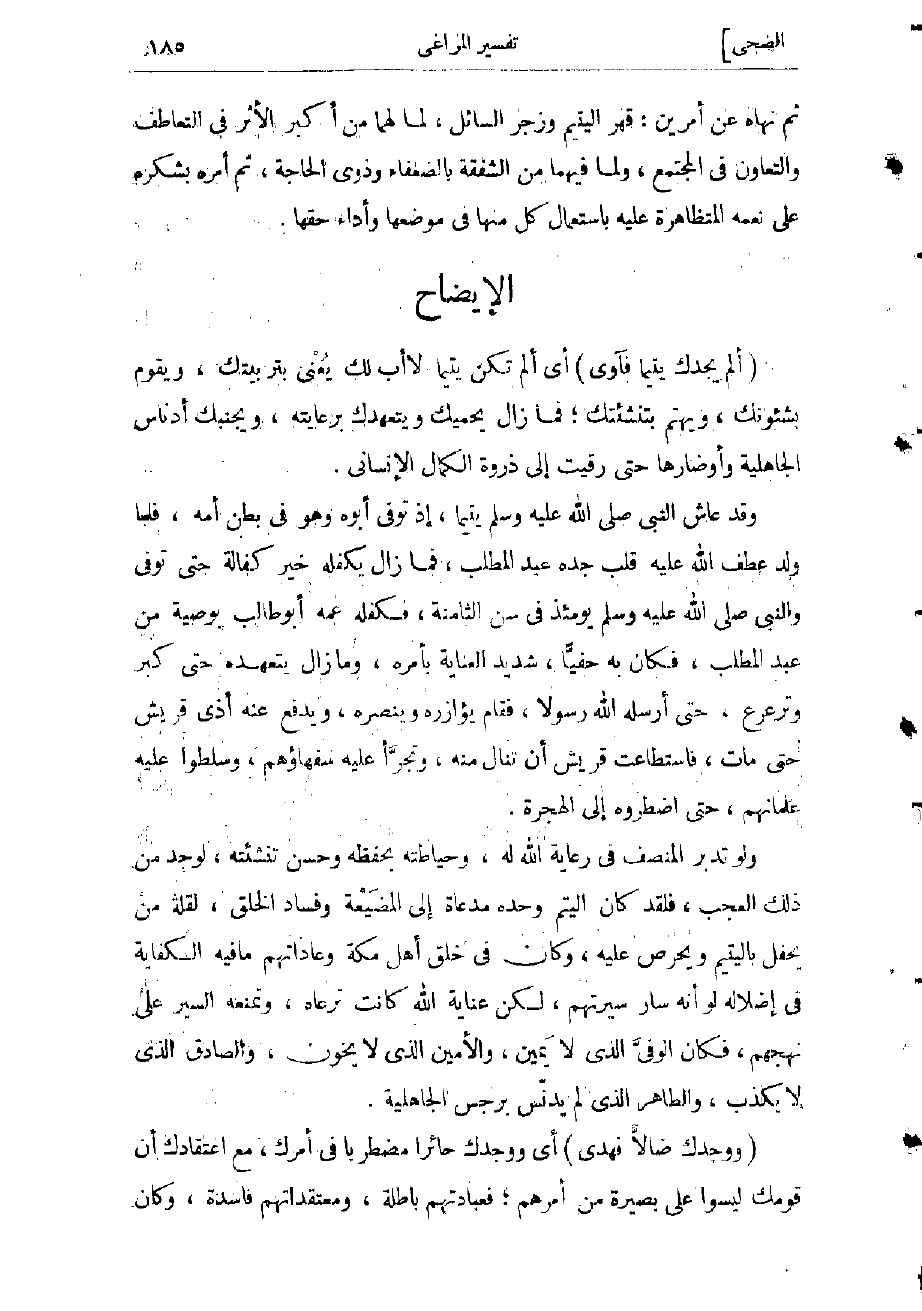 الضحى]
تفسير المراغى
١٨٥
ثم نهاه عن أمرين : قهر اليتيم وزجر السائل ، لما لهما من أكبر الأثر فى التعاطف
والتعاون فى المجتمع ، ولما فيهما من الشفقة بالضعفاء وذوى الحاجة ، ثم أمره بشكره
على نعمه المتظاهرة عليه باستعمال كل منها فى موضعها وأداء حقها .
الإيضاح
( ألم يجدك يتيما فآوى ) أى ألم تكن يتيما لا أب لك يُعْنى بتربيتك ، ويقوم
بشئونك ، ويهتم بتنشئتك ؛ فما زال يحميك ويتعهدك برعايته ، ويجنبك أدناس
الجاهلية وأوضارها حتى رقيت إلى ذروة الكمال الإنسانى .
وقد عاش النبى صلى الله عليه وسلم يتيما ، إذ توفى أبوه وهو فى بطن أمه ، فلما
ولد عطف الله عليه قلب جده عبد المطلب ، فما زال يكفله خير كفالة حتى توفى
والنبى صلى الله عليه وسلم يومئذ فى سن الثامنة ، فكفله عمه أبو طالب بوصية من
عبد المطلب ، فكان به حفيًّا ، شديد العناية بأمره ، وما زال يتعهده حتى كبر
وترعرع ، حتى أرسله الله رسولا ، فقام يؤازره وينصره ، ويدفع عنه أذى قريش
حتى مات ، فاستطاعت قريش أن تنال منه ، وتجرَّأ عليه سفهاؤهم ، وسلطوا عليه
غلمانهم ، حتى اضطروه إلى الهجرة .
ولو تدبر المنصف فى رعاية الله له ، وحياطته بحفظه وحسن تنشئته ، لوجد من
ذلك العجب ، فلقد كان اليتم وحده مدعاة إلى المَضْيَعة وفساد الخلق ، لقلة من
يحفل باليتيم ويحرص عليه ، وكان فى خلق أهل مكة وعاداتهم ما فيه الكفاية
فى إضلاله لو أنه سار سيرتهم ، لكن عناية الله كانت ترعاه ، وتمنعه السير على
نهجهم ، فكان الوفىَّ الذى لا يَمين ، والأمين الذى لا يخون ، والصادق الذى
لا يكذب ، والطاهر الذى لم يدنّس برجس الجاهلية .
( ووجدك ضالاًّ فهدى ) أى ووجدك حائرا مضطربا فى أمرك ، مع اعتقادك أن
قومك ليسوا على بصيرة من أمرهم ؛ فعبادتهم باطلة ، ومعتقداتهم فاسدة ، وكان